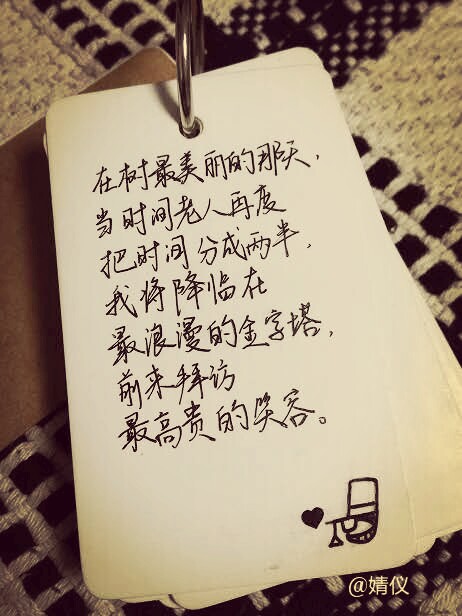 在树最美丽的那天，
当时间老人再度
把时间分成两半，
我将降临在
最浪漫的金字塔，
前来拜访
最高贵的笑容。
@婧仪